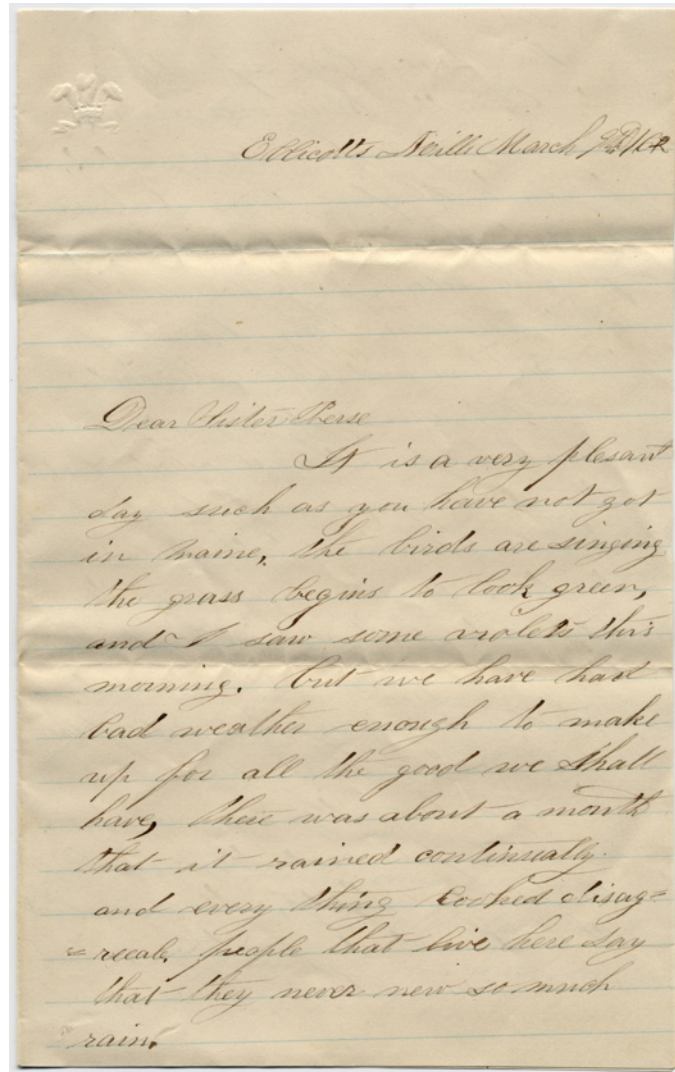 Ellicotts Mills March
Dear Sister
It is a very plesant
day such as you have not got
in Maine, the birds are singing
the grass begins to look green,
and I saw some violets this
morning. but we have had
bad weather enough to make
up for all the good we shall
have, there was about a month
that it rained continually.
and every thing looked disag=
=recal, people that live here say
that they never new so much
rain.